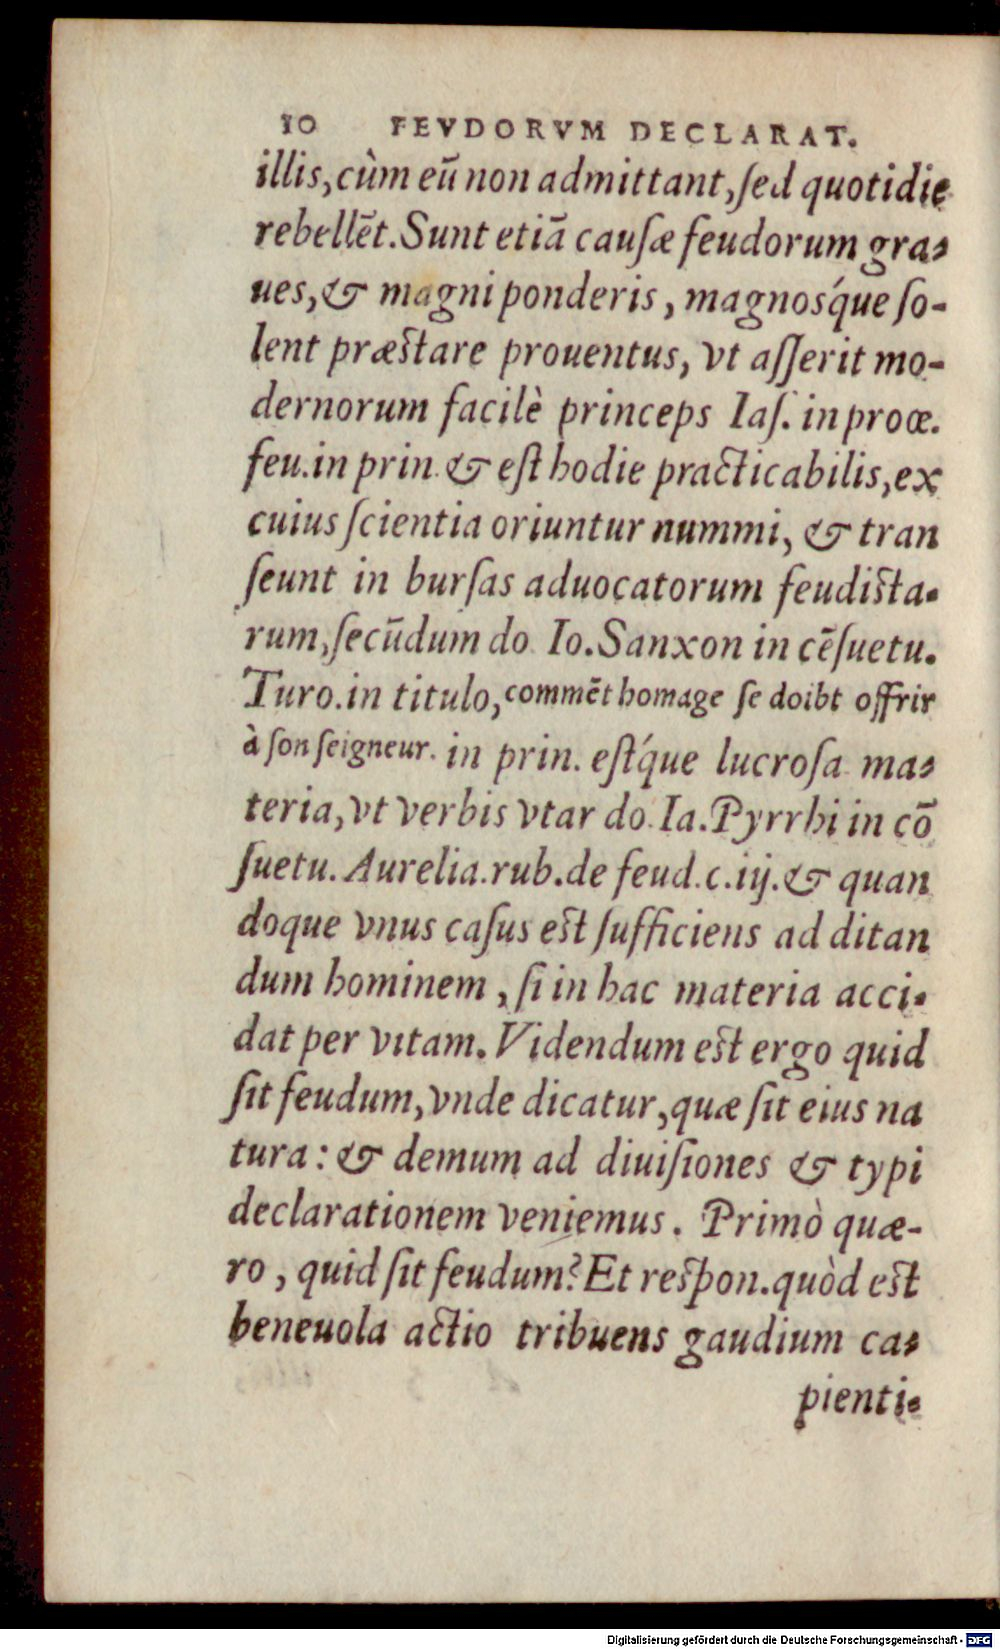 10 FEVDORVM DECLARAT.
illis, cùm eū non admittant, ſed quotidie
rebellēt. Sunt etiā cauſæ feudorum gra-
ues, & magni ponderis, magnosq́ue ſo-
lent præſtare prouentus, vt aſſerit mo-
dernorum facilè princeps Iaſ. in proœ.
feu. in prin. & eſt hodie practicabilis, ex
cuius ſcientia oriuntur nummi, & tran
ſeunt in burſas aduocatorum feudiſta-
rum, ſecūdum do. Io. Sanxon in cēſuetu.
Turo. in titulo, commēt homage ſe doibt offrir
à ſon ſeigneur. in prin. eſtq́ue lucroſa ma-
teria, vt verbis vtar do. Ia. Pyrrhi in cō
ſuetu. Aurelia. rub. de feud. c. iij. & quan
doque vnus caſus eſt ſufficiens ad ditan
dum hominem, ſi in hac materia acci-
dat per vitam. Videndum eſt ergo quid
ſit feudum, vnde dicatur, quæ ſit eius na
tura: & demum ad diuiſiones & typi
declarationem veniemus. Primò quæ-
ro, quid ſit feudum? Et reſpon. quòd eſt
beneuola actio tribuens gaudium ca-
pienti-
Digitalisierung gefördert durch die Deutsche Forschungsgemeinschaft - DFG